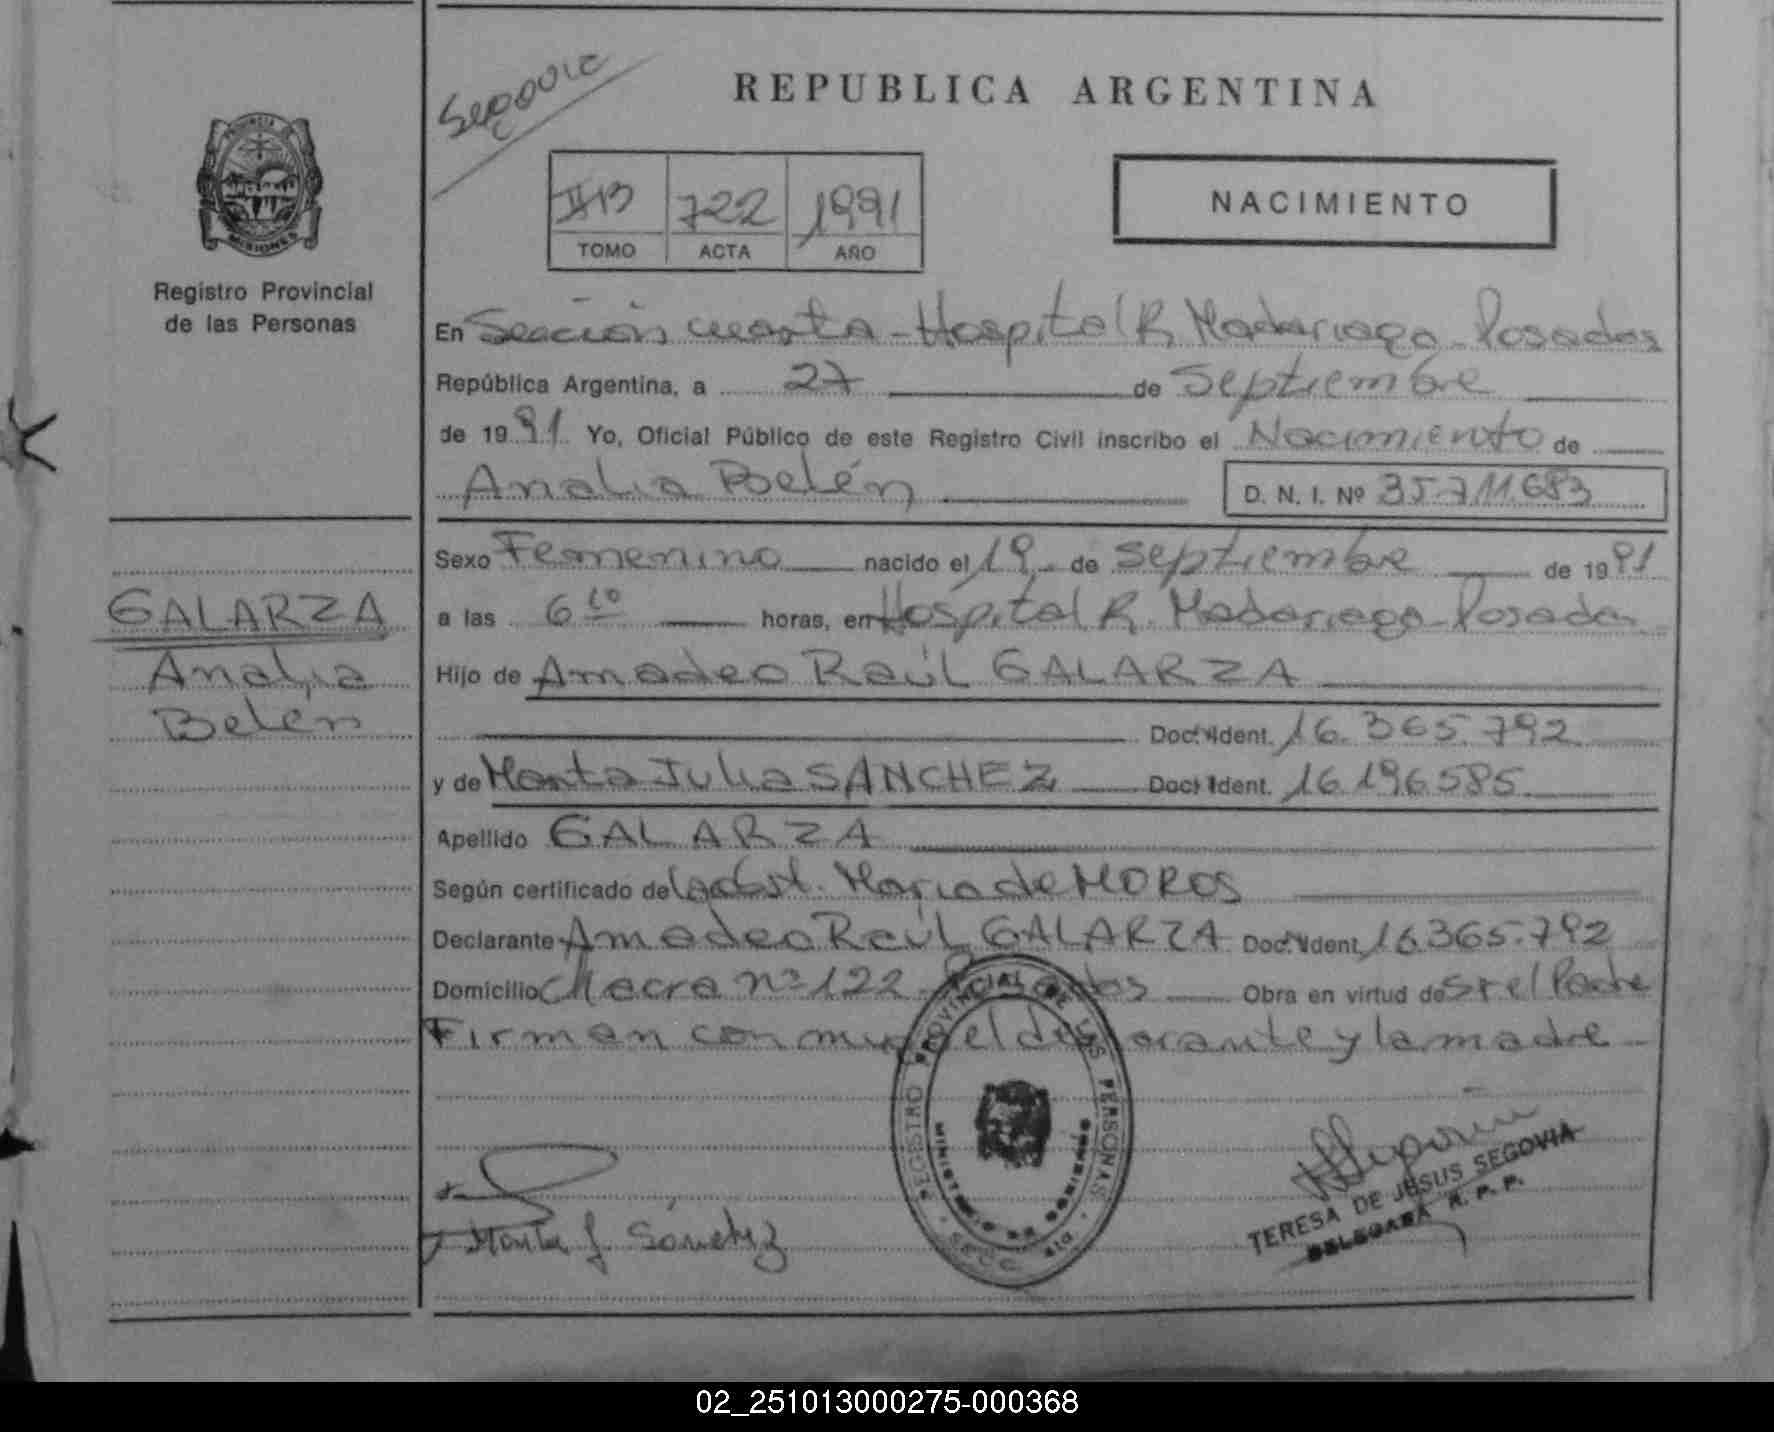 Segovia
REPUBLICA ARGENTINA
PROVINCIA DE
MISIONES
Registro Provincial
de las Personas
II B 722 1991
TOMO ACTA AÑO
NACIMIENTO
En Sección cuarta - Hospital R. Madariaga - Posadas
República Argentina, a 27 de Septiembre
de 1991 Yo, Oficial Público de este Registro Civil inscribo el Nacimiento de
Analia Belén D. N. I. Nº 35.711.683
Sexo Femenino nacido el 19 de Septiembre de 1991
a las 6 10 horas, en Hospital R. Madariaga - Posadas
Hijo de Amadeo Raúl GALARZA
Doc. Ident. 16.365.792
y de Marta Julia SANCHEZ Doc. Ident. 16.196.585
Apellido GALARZA
Según certificado de la obst. Maria de MOROS
Declarante Amadeo Raúl GALARZA Doc. Ident. 16.365.792
Domicilio Chacra nº 122 - Posadas Obra en virtud de Sr el Padre
Firman conmigo el declarante y la madre
GALARZA
Analia
Belén
REGISTRO PROVINCIAL DE LAS PERSONAS
MINISTERIO DE GOBIERNO
Marta J. Sánchez
TERESA DE JESUS SEGOVIA
DELEGADA R. P. P.
02_251013000275-000368